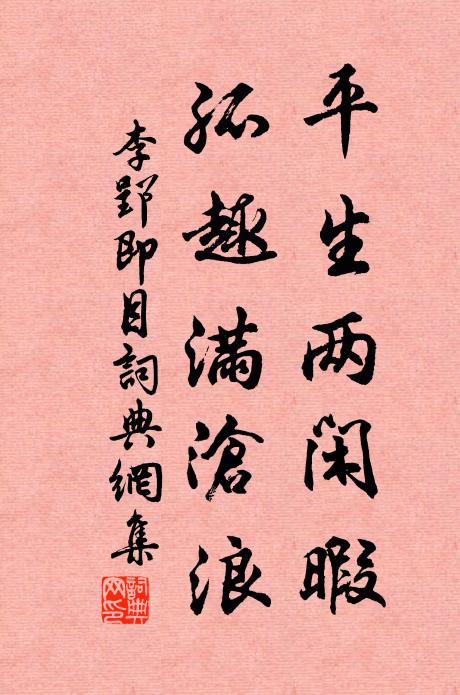 平生两闲暇
孤趣满滄浪
李郢即目詞典網集
詞典网印